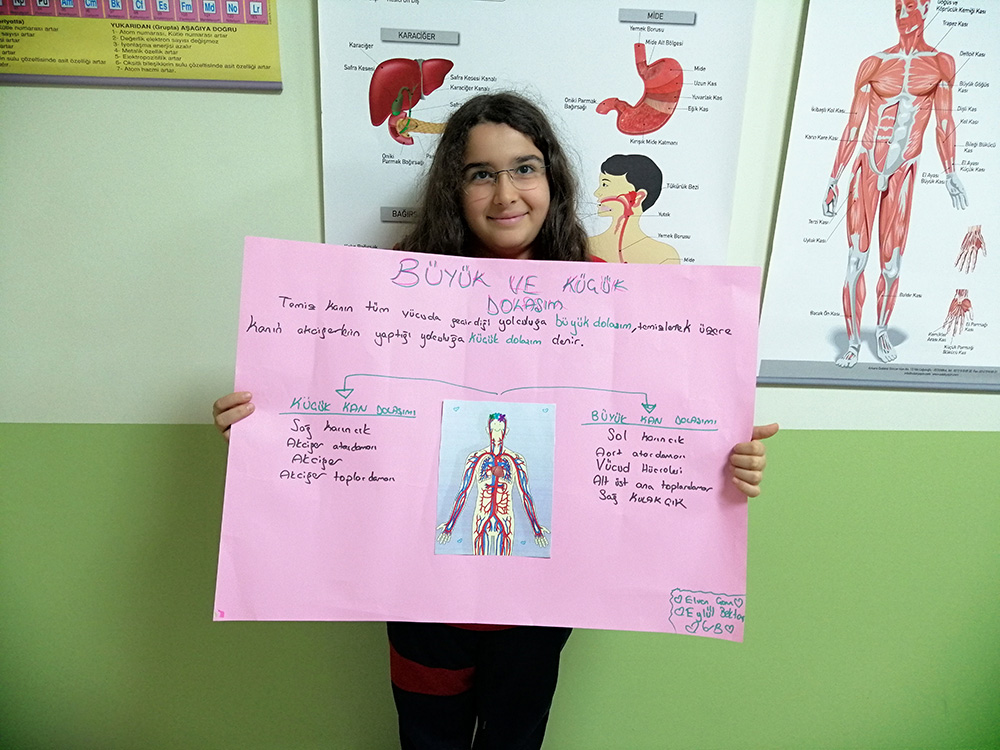 Bk Cf Es Fm Md No Lr
YUKARIDAN (Grupta) AŞAĞIYA DOĞRU
1- Atom numarası, Kütle numarası artar
2- Değerlik elektron sayısı değişmez
3- İyonlaşma enerjisi azalır
4- Metalik özellik artar
5- Elektropozitiflik artar
7- Atom hacmi artar.
KARACİĞER
Karaciğer
Safra Kesesi
Safra Kesesi Kanalı
Karaciğer Kanalı
Oniki
Parmak Bağırsağı
MİDE
Yemek Borusu
Mide Alt Bölgesi
Mide
Uzun Kas
Yuvarlak Kas
Eğik Kas
Oniki Parmak
Bağırsağı
Kırışık Mide Katmanı
Tükürük Bezi
Yutak
Yemek Borusu
Mide
Köprücük Kemiği Kası
Trapez Kası
Deltoit Kası
Büyük Göğüs
Kası
Dişli Kas
Kol Kası
Bileği Bükücü
Kas
El Ayası
Küçük Kas
El Ayası
Büyük Kas
İkibaşlı Kol Kası
Karın Kare Kası
Terzi Kası
Uyluk Kası
Baldır Kası
Bacak Ön Kası
BÜYÜK VE KÜÇÜK
DOLAŞIM
Temiz kanın tüm vücuda geçirdiği yolculuğa büyük dolaşım, temizlenek üzere
kanın akciğerlerin yaptığı yolculuğa küçük dolaşım denir.
KÜÇÜK KAN DOLAŞIMI
Sağ karıncık
Akciğer atardamarı
Akciğer
Akciğer toplardamarı
BÜYÜK KAN DOLAŞIMI
Sol karıncık
Aort atardamarı
Vücud Hücreleri
Alt üst ana toplardamar
Sağ KULAKÇIK
Eylül
6/B